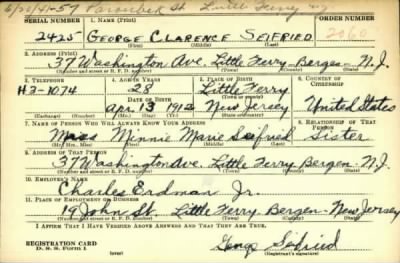 SERIAL NUMBER 1. NAME (Print) ORDER NUMBER
2425 GEORGE CLARENCE SEIFRIED 2060
(First) (Middle) (Last)
2. ADDRESS (Print)
37 Washington Ave. Little Ferry - Bergen - N.J.
(Number and street or R. F. D. number) (Town) (County) (State)
3. TELEPHONE 4. AGE IN YEARS 5. PLACE OF BIRTH 6. COUNTRY OF CITIZENSHIP
28 Little Ferry
H3-1074 DATE OF BIRTH (Town or county)
Apr. 13 1912 New Jersey United States
(Exchange) (Number) (Mo.) (Day) (Yr.) (State or country)
7. NAME OF PERSON WHO WILL ALWAYS KNOW YOUR ADDRESS 8. RELATIONSHIP OF THAT PERSON
Miss Minnie Marie Seifried Sister
(Mr., Mrs., Miss) (First) (Middle) (Last)
9. ADDRESS OF THAT PERSON
37 Washington Ave. Little Ferry Bergen - N.J.
(Number and street or R. F. D. number) (Town) (County) (State)
10. EMPLOYER'S NAME
Charles Erdman Jr.
11. PLACE OF EMPLOYMENT OR BUSINESS
19 John St. Little Ferry - Bergen - New Jersey
(Number and street or R. F. D. number) (Town) (County) (State)
I AFFIRM THAT I HAVE VERIFIED ABOVE ANSWERS AND THAT THEY ARE TRUE.
REGISTRATION CARD
D. S. S. Form 1 (over) George Seifried
(Registrant's signature)